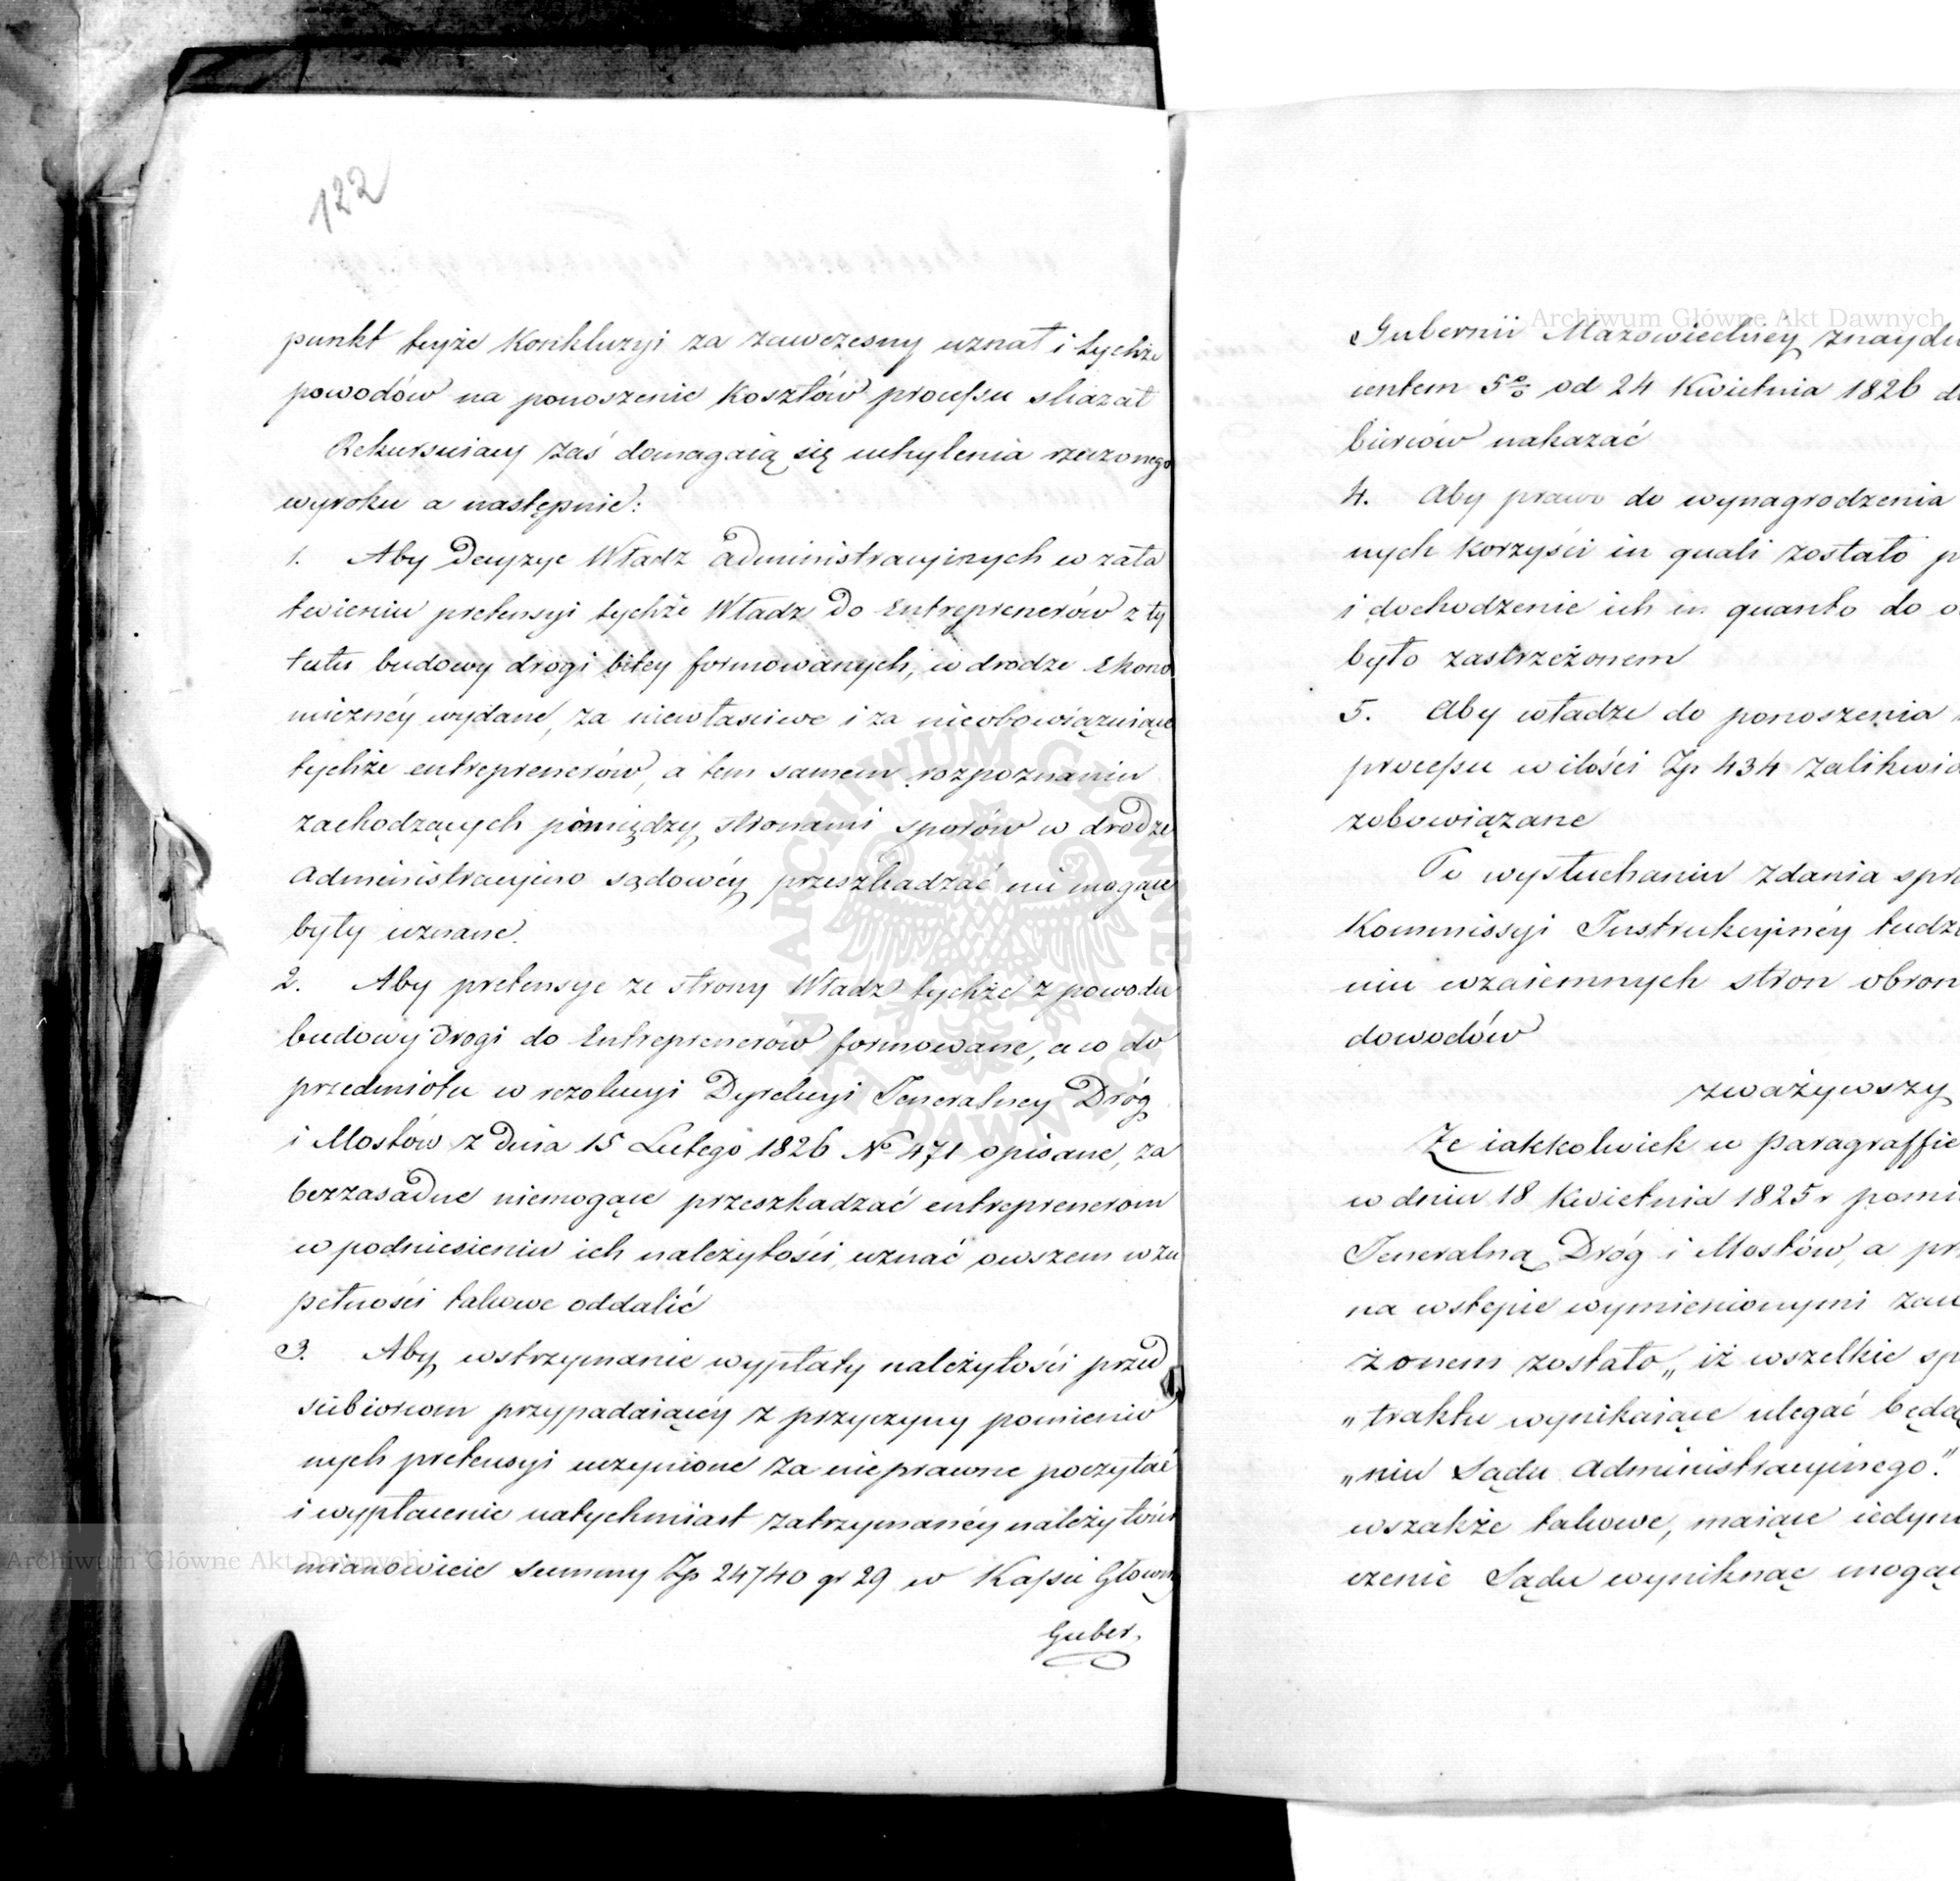 122
punkt teyże Konkluzyi za zawczesny uznał i tychże
powodów na ponoszenie kosztów processu skazał
Rekursuiący zaś domagaią się uchylenia rzeczonego
wyroku a następnie:
1. Aby Decyzye Władz Administracyinych w zała
twieniu pretensyi tychże Władz do Entreprenerów z ty
tułu budowy drogi bitey formowanych, w drodze Ekono
miczney wydane, za niewłasciwe i za nieobowiązuiące
tychże entreprenerów, a tem samem rozpoznaniu
zachodzących pomiędzy stronami sporów w drodze
Administracyino sądowéy przeszkadzać nie mogące
były uznane.
2. Aby pretensye ze strony Władz tychże z powodu
budowy Drogi do Entreprenerów formowane, a co do
przedmiotu w rezolucyi Dyrekcyi Jeneralney Dróg
i Mostów z dnia 15 Lutego 1826 No 471 opisane, za
bezzasadne niemogące przeszkadzać entreprenerom
w podniesieniu ich należytości, uznać owszem w zu
pełności takowe oddalić
3. Aby wstrzymanie wypłaty należytości przed
siebiorcom przypadaiącéy z przyczyny pomienio
nych pretensyi uczynione za nieprawne poczytać
i wypłacenie natychmiast zatrzymanéy należytości
mianowicie summy Zp 24740 gr 29 w Kassie Główn
Guber,
Gubernii Mazowieckiey znaydu
centem 5% od 24 Kwietnia 1826 d
biorców nakazać
4. Aby prawo do wynagrodzenia
nych korzyści in quali zostało p
i dochodzenie ich in quanto do o
było zastrzeżonem
5. Aby władze do ponoszenia
processu w ilości Zp 434 zalikwid
zobowiązane
Po wysłuchaniu zdania spra
Kommissyi Instrukcyinéy tudzi
niu wzaiemnych stron obron
dowodów
zważywszy
Że iakkolwiek w paragraffie
w dniu 18 Kwietnia 1825 r pomi
Jeneralną Dróg i Mostów, a prz
na wstępie wymienionymi zaw
żonem zostało „iż wszelkie sp
„traktu wynikaiące ulegać będą
„niu Sądu Administracyinego".
wszakże takowe, maiące iedyn
czenie Sądu wyniknąć mogąc
Archiwum Główne Akt Dawnych
Archiwum Główne Akt Dawnych
ARCHIWUM GŁÓWNE AKT DAWNYCH